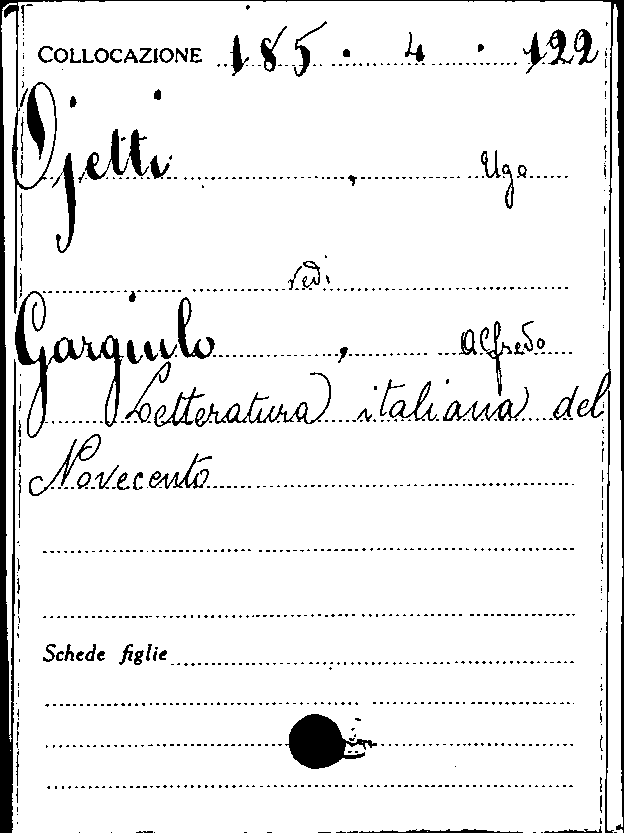 COLLOCAZIONE 185 . 4 . 122
Ojetti , Ugo
vedi
Gargiulo , Alfredo
Letteratura italiana del
Novecento
Schede figlie